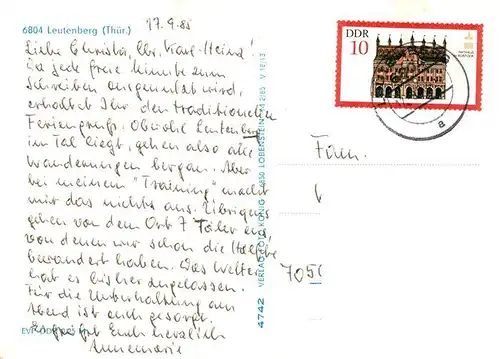 17.9.85
6804 Leutenberg (Thür.)
Liebe Christa, lbr. Karl-Heinz!
Da jede freie Minute zum
Schreiben ausgenutzt wird,
erhaltet Ihr den traditionellen
Feriengruß. Obwohl Leutenberg
im Tal liegt, gehen also alle
Wanderungen bergan. Aber
bei meinem "Training" macht
mir das nichts aus. Übrigens
gehen von dem Ort 7 Täler aus,
von denen wir schon die Hälfte
bewandert haben. Das Wetter
hat es bisher zugelassen.
Für die Unterhaltung am
Abend ist auch gesorgt.
Es grüßt Euch herzlich
Annemarie
EVP
4742 VERLAG FOTO-KÖNIG 6850 LOBENSTEIN V 10/13
DDR
10
a
Fam.
705